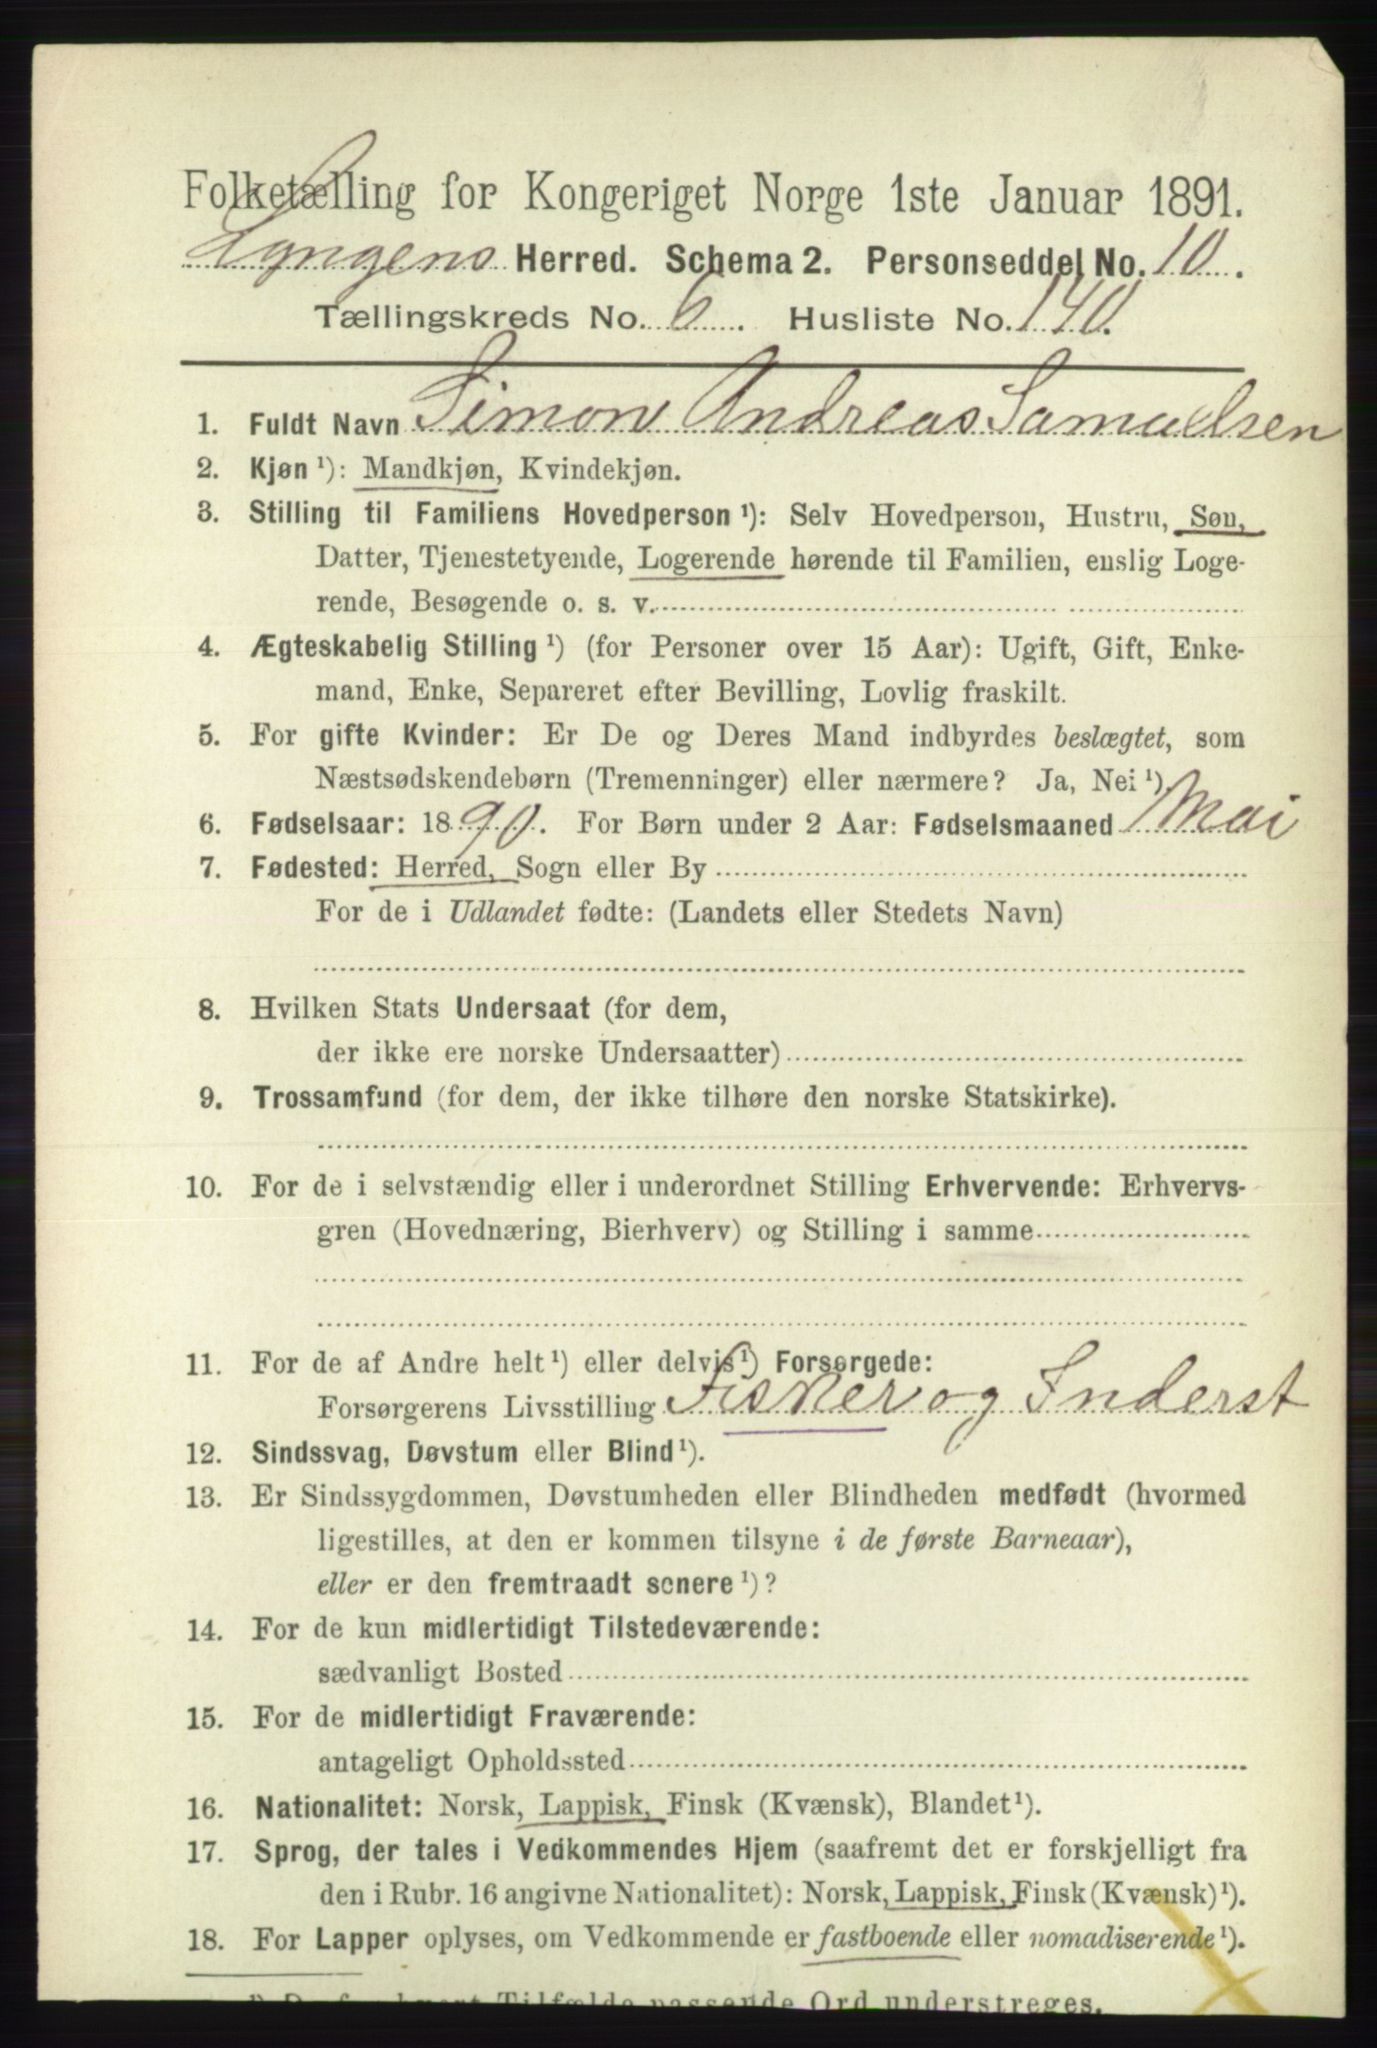 Folketælling for Kongeriget Norge 1ste Januar 1891.
Lyngens Herred. Schema 2. Personseddel No. 10.
Tællingskreds No. 6. Husliste No. 140.
1. Fuldt Navn Simon Andreas Samuelsen
2. Kjøn ¹): Mandkjøn, Kvindekjøn.
3. Stilling til Familiens Hovedperson ¹): Selv Hovedperson, Hustru, Søn,
Datter, Tjenestetyende, Logerende hørende til Familien, enslig Loge-
rende, Besøgende o. s. v.
4. Ægteskabelig Stilling ¹) (for Personer over 15 Aar): Ugift, Gift, Enke-
mand, Enke, Separeret efter Bevilling, Lovlig fraskilt.
5. For gifte Kvinder: Er De og Deres Mand indbyrdes beslægtet, som
Næstsødskendebørn (Tremenninger) eller nærmere? Ja, Nei ¹)
6. Fødselsaar: 1890. For Børn under 2 Aar: Fødselsmaaned Mai
7. Fødested: Herred, Sogn eller By
For de i Udlandet fødte: (Landets eller Stedets Navn)
8. Hvilken Stats Undersaat (for dem,
der ikke ere norske Undersaatter)
9. Trossamfund (for dem, der ikke tilhøre den norske Statskirke).
10. For de i selvstændig eller i underordnet Stilling Erhvervende: Erhvervs-
gren (Hovednæring, Bierhverv) og Stilling i samme
11. For de af Andre helt ¹) eller delvis ¹) Forsørgede:
Forsørgerens Livsstilling Fisker og Inderst
12. Sindssvag, Døvstum eller Blind ¹).
13. Er Sindssygdommen, Døvstumheden eller Blindheden medfødt (hvormed
ligestilles, at den er kommen tilsyne i de første Barneaar),
eller er den fremtraadt senere ¹)?
14. For de kun midlertidigt Tilstedeværende:
sædvanligt Bosted
15. For de midlertidigt Fraværende:
antageligt Opholdssted
16. Nationalitet: Norsk, Lappisk, Finsk (Kvænsk), Blandet ¹).
17. Sprog, der tales i Vedkommendes Hjem (saafremt det er forskjelligt fra
den i Rubr. 16 angivne Nationalitet): Norsk, Lappisk, Finsk (Kvænsk) ¹).
18. For Lapper oplyses, om Vedkommende er fastboende eller nomadiserende ¹).
¹) De for hvert Tilfælde passende Ord understreges.